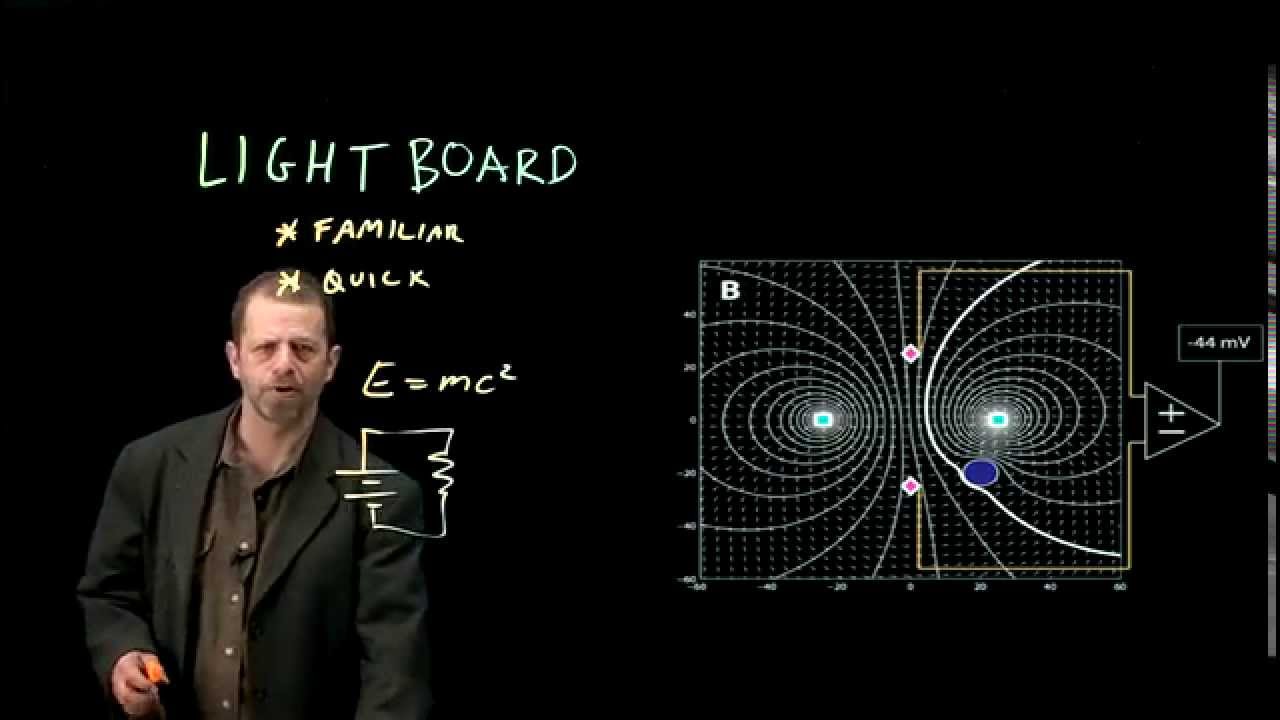 LIGHTBOARD
* FAMILIAR
* QUICK
E=mc²
B
40
20
0
-20
-40
-60
-60 -40 -20 0 20 40 60
-44 mV
+
−